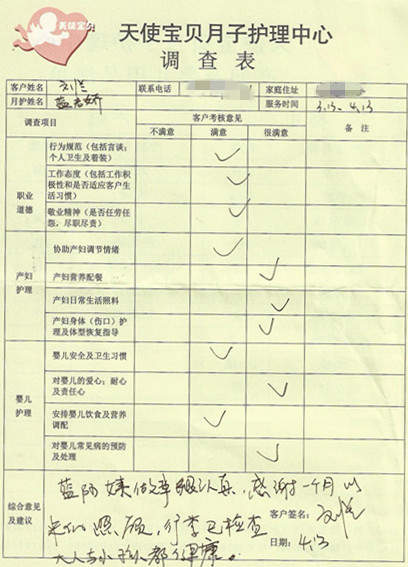 天使宝贝
天使宝贝月子护理中心
调查表
客户姓名 联系电话 家庭住址
月护姓名 服务时间 3.13-4.13
调查项目 客户考核意见 备注
不满意 满意 很满意
职业道德
行为规范(包括言谈;个人卫生及着装)
工作态度(包括工作积极性和是否适应客户生活习惯)
敬业精神(是否任劳任怨,尽职尽责)
产妇护理
协助产妇调节情绪
产妇营养配餐
产妇日常生活照料
产妇身体(伤口)护理及体型恢复指导
婴儿护理
婴儿安全及卫生习惯
对婴儿的爱心;耐心及责任心
安排婴儿饮食及营养调配
对婴儿常见病的预防及处理
综合意见及建议
蓝阿姨做事很认真,感谢一个月以
来的照顾,行李已检查
大人与小孩都健康。
客户签名:
日期:4.13